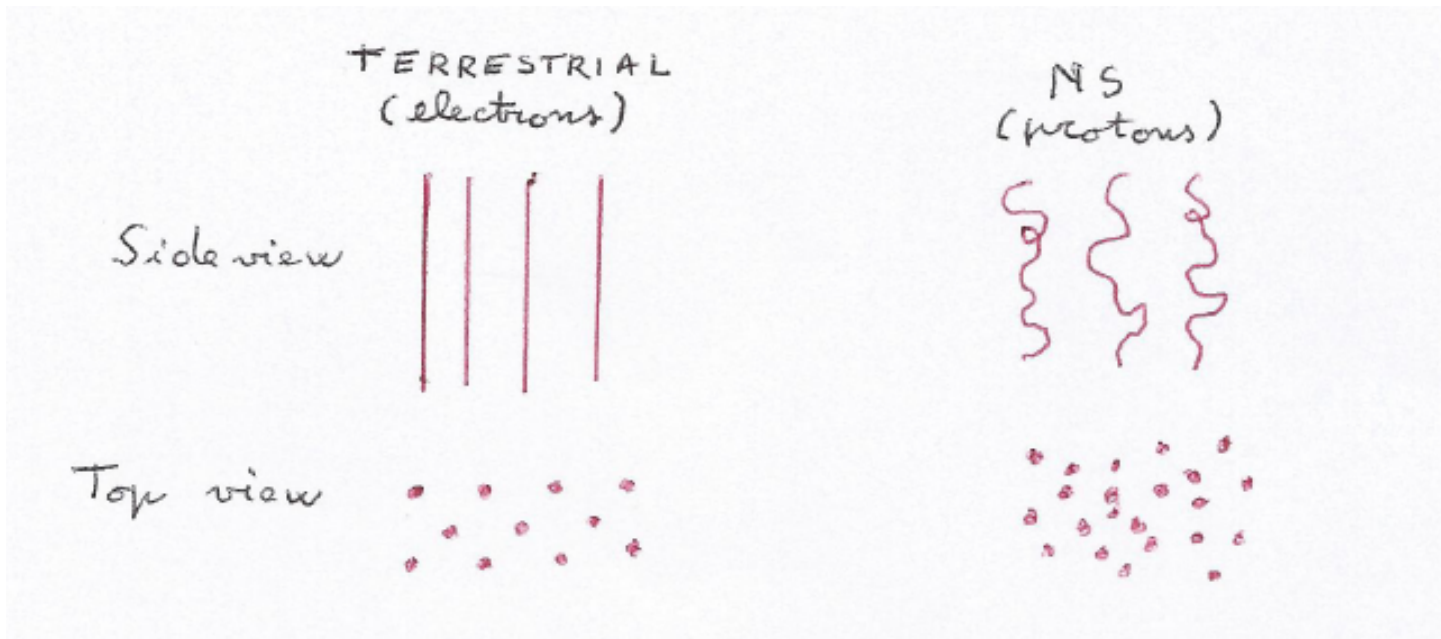 TERRESTRIAL
(electrons)
NS
(protons)
Side view
Top view